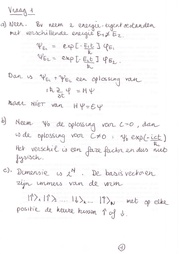 Vraag 1
a) Neen. Bv. neem 2 energie-eigentoestanden
met verschillende energie E₁ ≠ E₂.
ψ_E₁ = exp[-iE₁t/ħ] φ_E₁
ψ_E₂ = exp[-iE₂t/ħ] φ_E₂.
Dan is ψ_E₁ + ψ_E₂ een oplossing van
iħ ∂/∂t ψ = Hψ
maar niet van Hψ = Eψ
b) Neem ψ₀ de oplossing van C=0, dan
is de oplossing voor C≠0 : ψ₀ exp(-iCt/ħ)
Het verschil is een fase factor en dus niet
fysisch.
c). Dimensie is 2^N. De basisvectoren
zijn immers van de vorm
|↑⟩₁ |↑⟩₂ ... |↓⟩ ... |↑⟩_N met op elke
positie de keuze tussen ↑ of ↓.